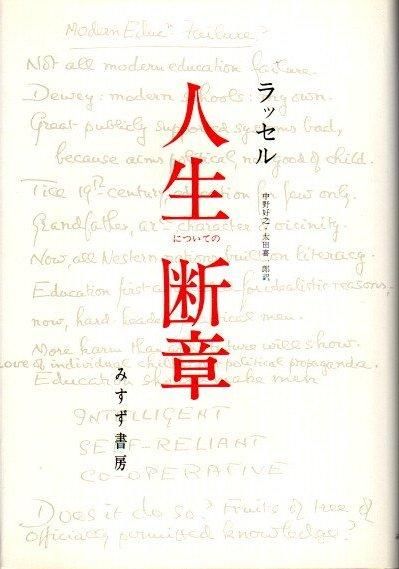 Modern Educn Failure?
Not all modern education failure.
Dewey: modern schools: my own.
Great publicly supported systems bad,
because aims political, not good of child.
Till 19th century, education for few only.
Grandfather,
Now, all Western nations built on literacy.
Education first for idealistic reasons,
now, hard-headed practical men.
More harm than will show.
Love of individual child political propaganda.
Education should make men
INTELLIGENT
SELF-RELIANT
CO-OPERATIVE
Does it do so? Fruits of tree of
officially permitted knowledge?
ラッセル
人生
についての
断章
中野好之・太田喜一郎訳
みすず書房